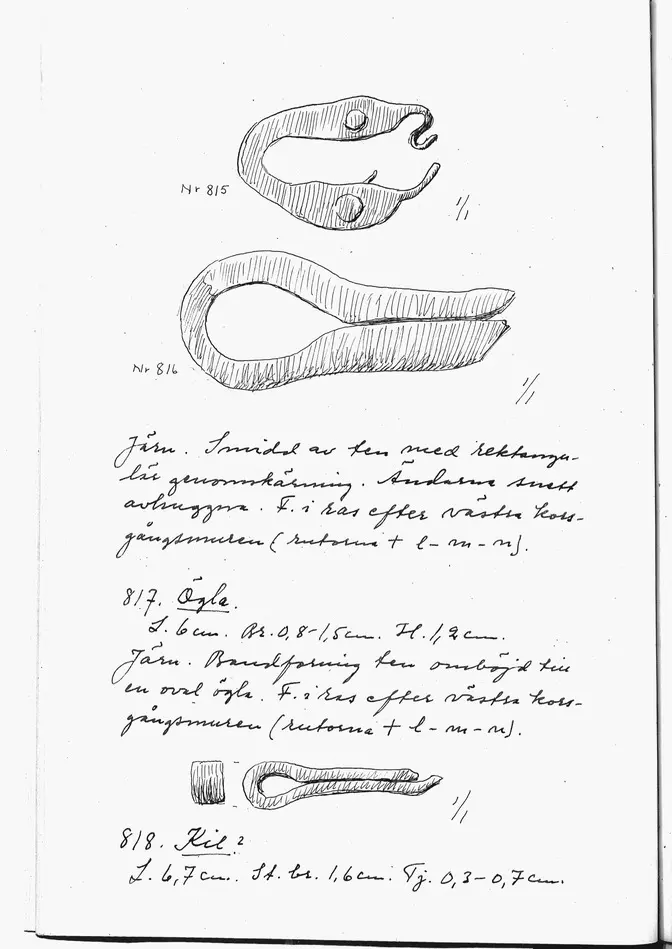 Nr 815
1/1
Nr 816
1/1
Järn. Smidd av ten med rektangu-
lär genomskärning. Ändarna snett
avhuggna. F. i ras efter västra kors-
gångsmuren (rutorna + l-m-n).
817. Ögla.
L. 6 cm. Br. 0,8-1,5 cm. H. 1,2 cm.
Järn. Bandformig ten omböjd till
en oval ögla. F. i ras efter västra kors-
gångsmuren (rutorna + l-m-n).
1/1
818. Kil?
L. 6,7 cm. St. br. 1,6 cm. Tj. 0,3-0,7 cm.